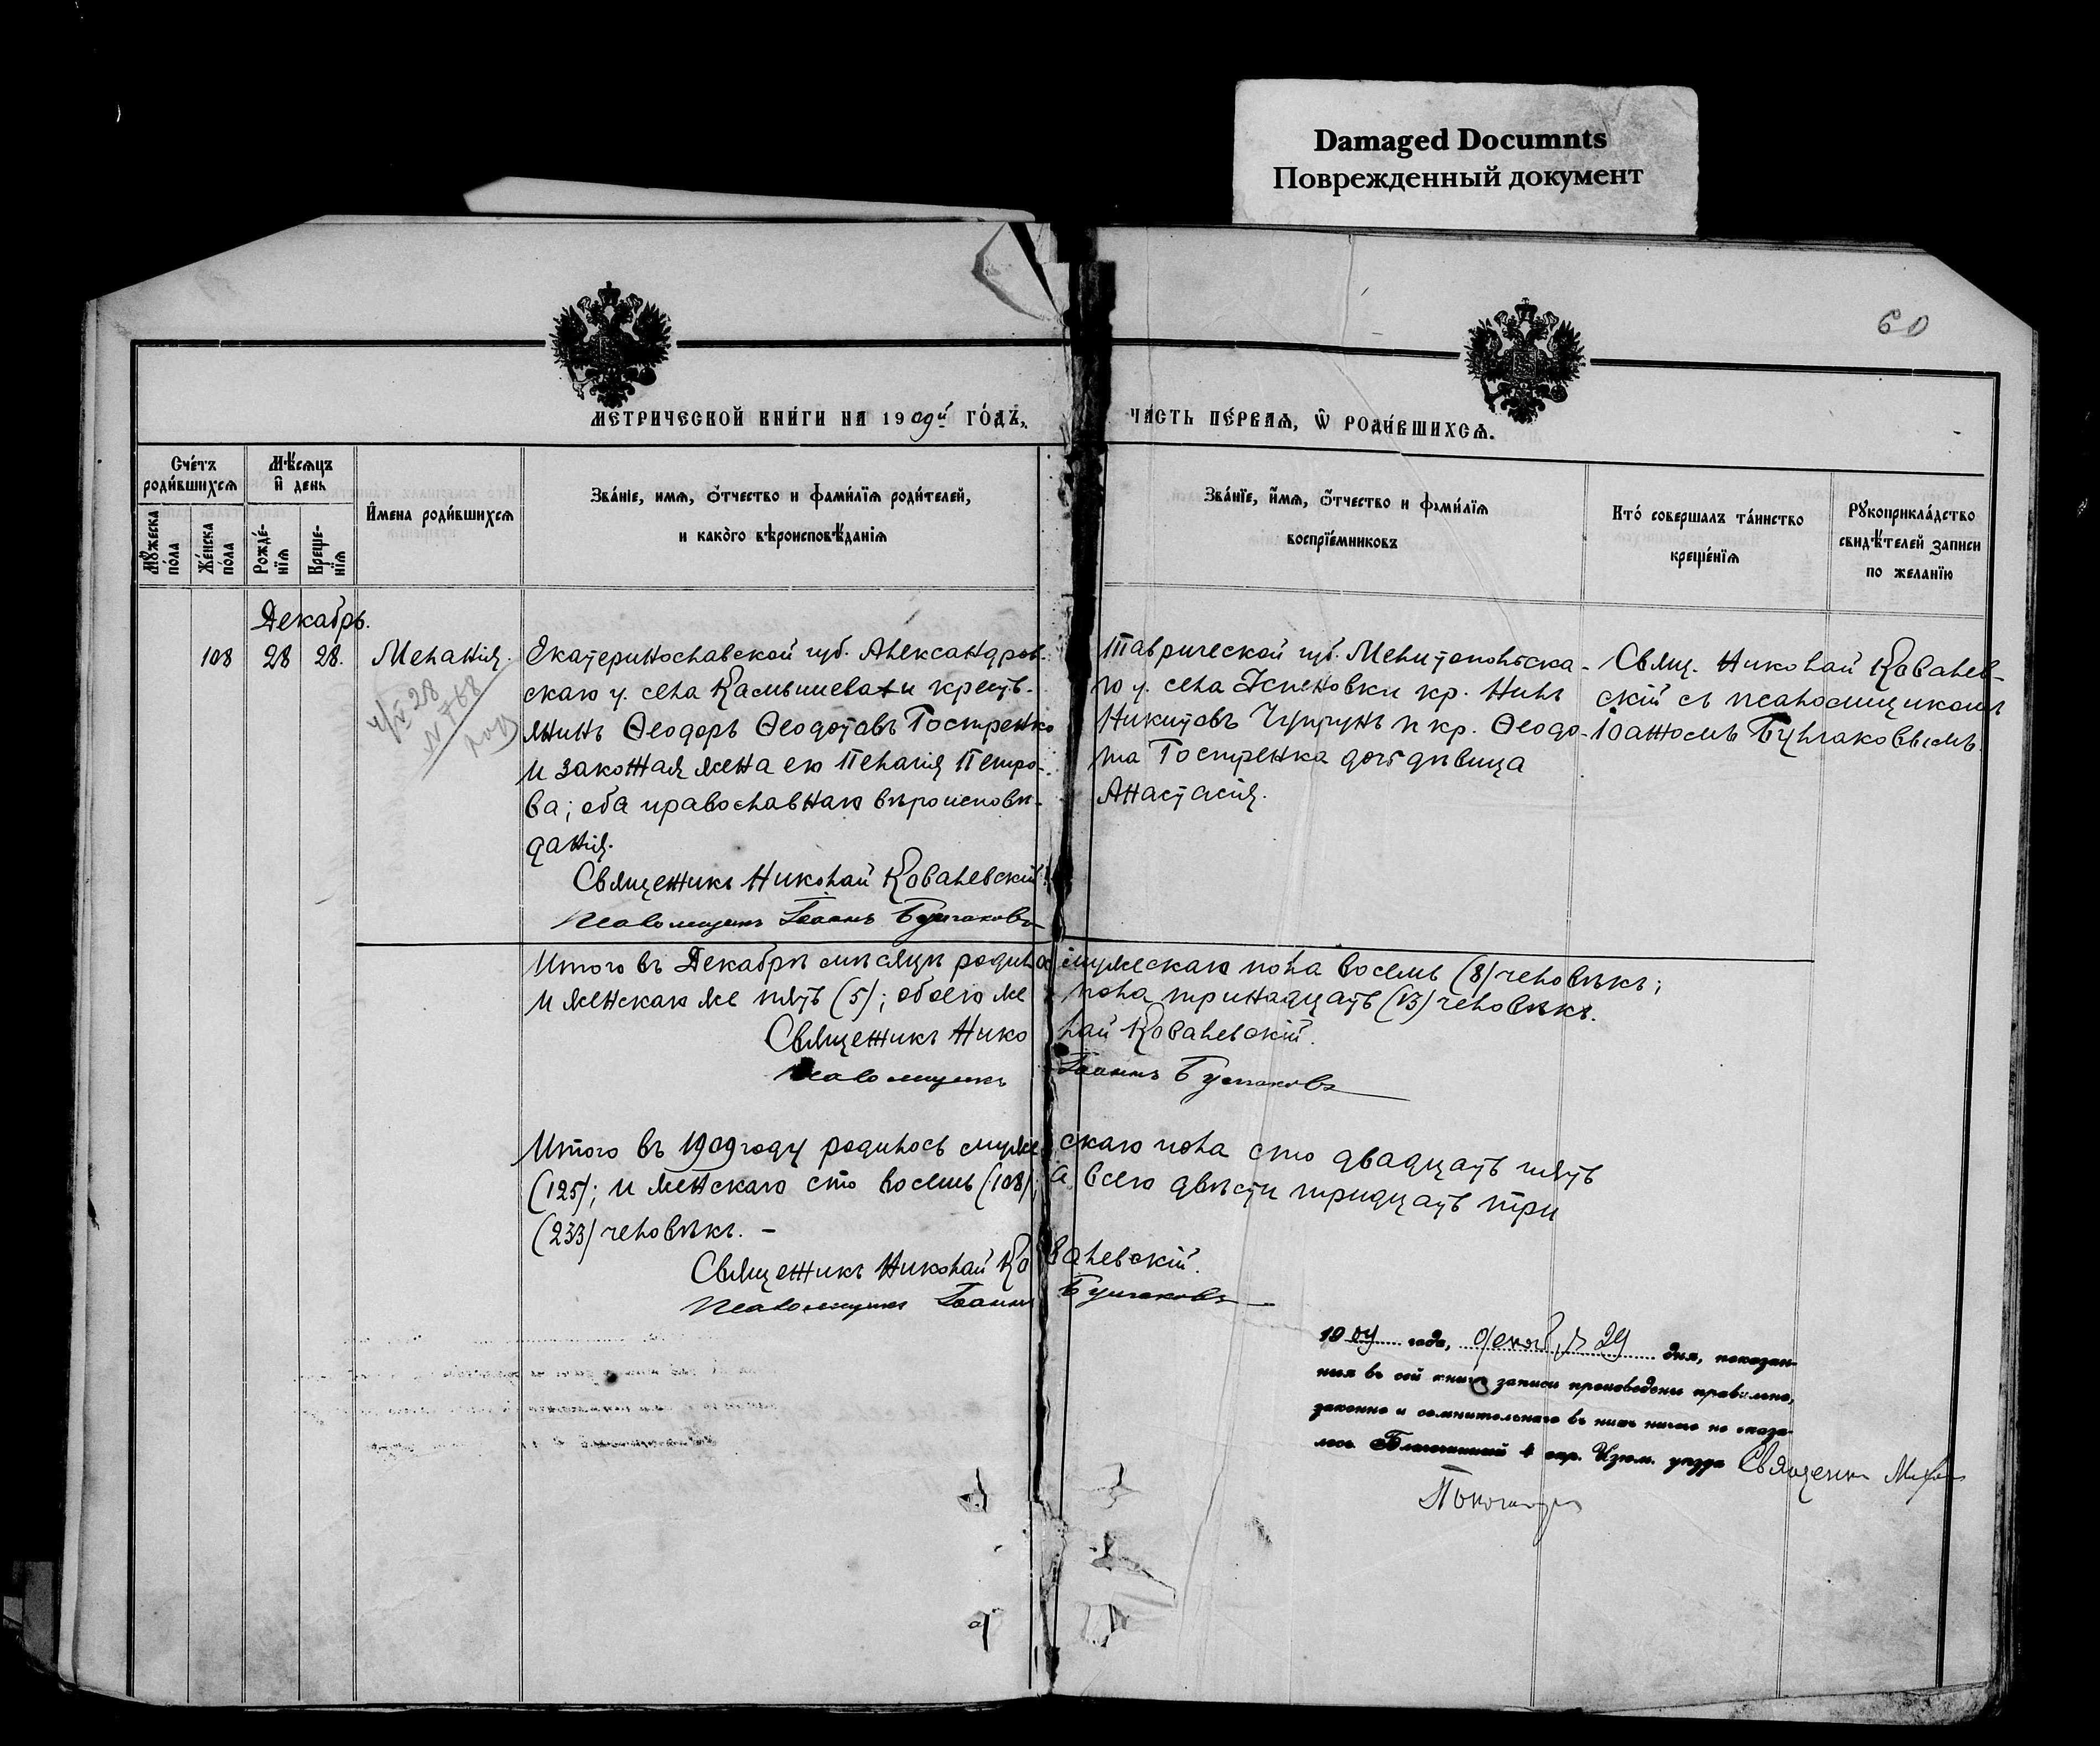 Damaged Documnts
Поврежденный документ
60
Метрической книги на 1909й годъ,
часть первая, ѡ родившихся.
Счетъ родившихся
Мужеска пола
Женска пола
Мѣсяцъ и день
Рожденія
Крещенія
Имена родившихся
Званіе, имя, отчество и фамилія родителей,
и какого вѣроисповѣданія
Званіе, имя, отчество и фамилія
воспріемниковъ
Кто совершалъ таинство
крещенія
Рукоприкладство
свидѣтелей записи
по желанію
Декабрь.
108 28 28. Меланія.
Екатеринославской губ. Александров-
скаго у. села Камышевахи кресть-
янинъ Ѳеодоръ Ѳеодотовъ Гостренко
и законная жена его Пелагія Петро-
ва; оба православнаго вѣроисповѣ-
данія.
Священникъ Николай Ковалевскій
Псаломщикъ Іоаннъ Булгаковъ
Таврической губ. Мелитопольска-
го у. села Успеновки кр. Нилъ
Никитовъ Чуприунъ и кр. Ѳеодо-
та Гостренка дочь дѣвица
Анастасія.
Свящ. Николай Ковалев-
скій съ псаломщикомъ
Іоанномъ Булгаковымъ.
Итого въ Декабрѣ мѣсяцѣ родилось мужескаго пола восемь (8) человѣкъ;
и женскаго же пять (5); обоего же пола тринадцать (13) человѣкъ.
Священникъ Николай Ковалевскій.
Псаломщикъ Іоаннъ Булгаковъ
Итого въ 1909 году родилось мужескаго пола сто двадцать пять
(125); и женскаго сто восемь (108); а всего двѣсти тридцать три
(233) человѣкъ. –
Священникъ Николай Ковалевскій.
Псаломщикъ Іоаннъ Булгаковъ
1909 года, декабря 29 дня, показан-
ныя въ сей книгѣ записи произведены правильно,
законно и сомнительнаго въ нихъ ничего не оказа-
лось. Благочинный 4 окр. Изюм. уѣзда Священникъ